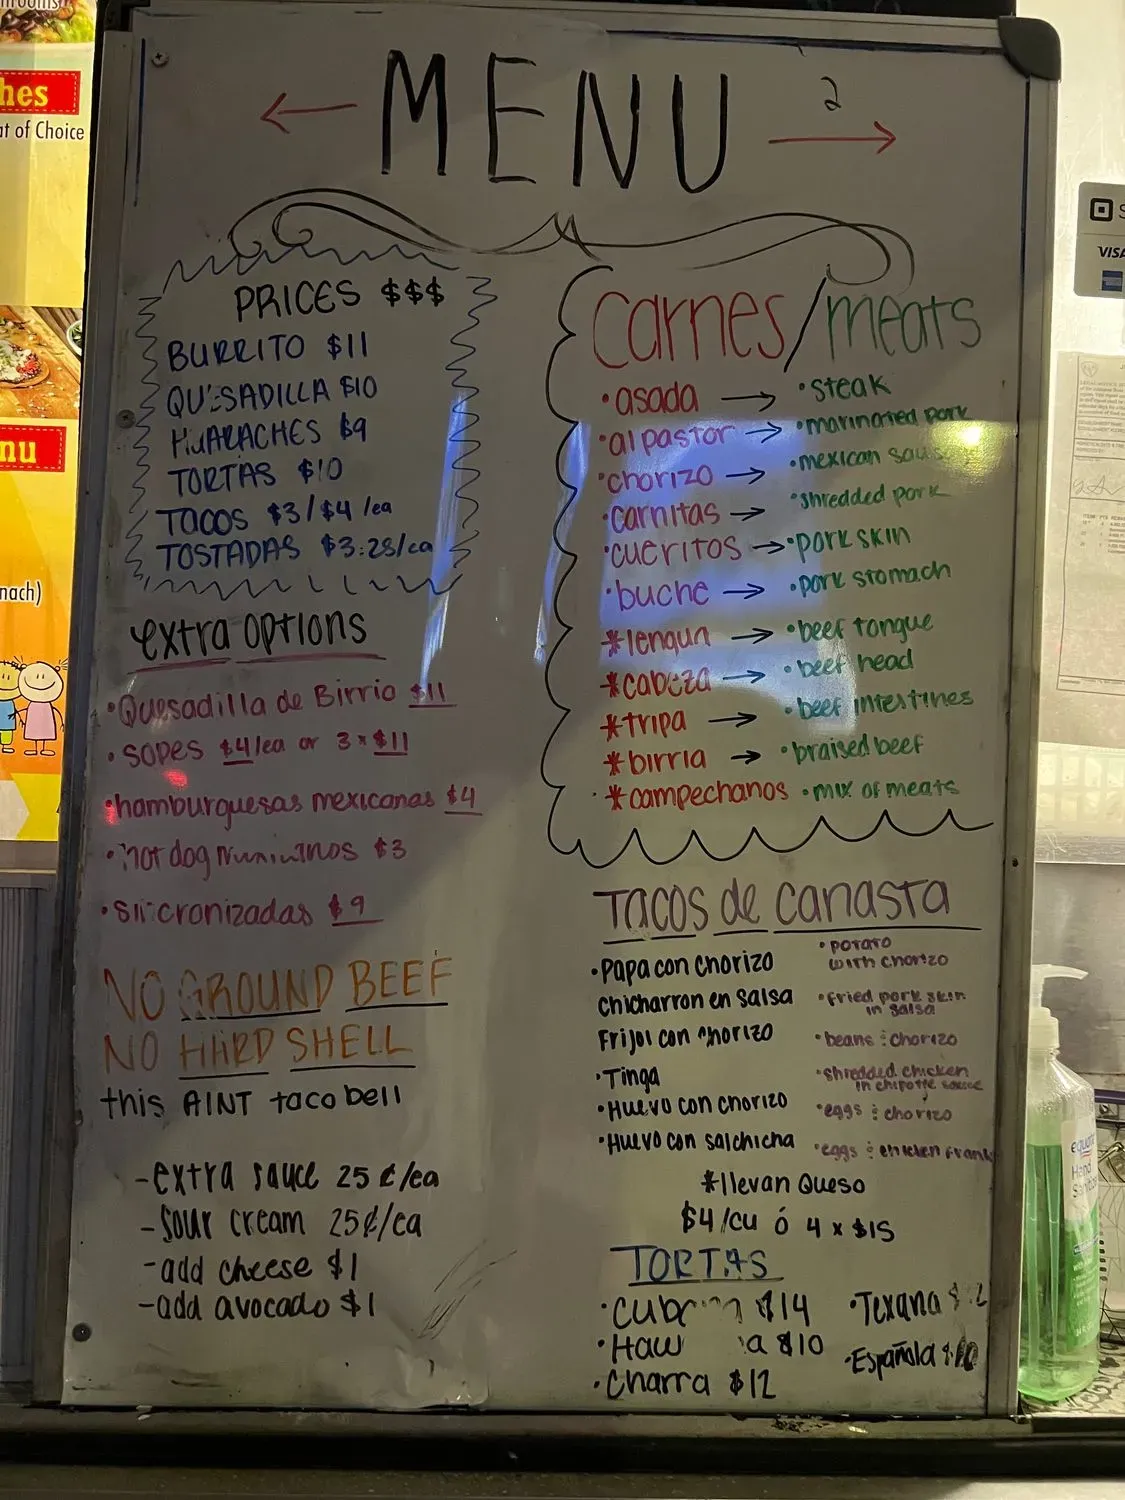 MENU
2
PRICES $$$
BURRITO $11
QUESADILLA $10
HUARACHES $9
TORTAS $10
TACOS $3/$4/ea
TOSTADAS $3.25/ea
extra options
•Quesadilla de Birria $11
•SOPES $4/ea or 3 x $11
•hamburguesas mexicanas $4
•hot dog $3
•sincronizadas $9
NO GROUND BEEF
NO HARD SHELL
this AINT taco bell
-extra sauce 25¢/ea
-Sour cream 25¢/ea
-add cheese $1
-add avocado $1
Carnes/meats
•asada → •steak
•al pastor → •marinated pork
•chorizo → •mexican
•carnitas → •shredded pork
•cueritos → •pork skin
•buche → •pork stomach
*lengua → •beef tongue
*cabeza → •beef head
*tripa → •beef intestines
*birria → •braised beef
*campechanos •mix of meats
TACOS de canasta
•Papa con chorizo •potato with chorizo
chicharron en salsa •fried pork skin in salsa
Frijol con chorizo •beans & chorizo
•Tinga •shredded chicken in chipotle sauce
•Huevo con chorizo •eggs & chorizo
•Huevo con salchicha •eggs & chicken frank
*llevan queso
$4/cu ó 4 x $15
TORTAS
$14 •Texana
$10 •Española
•Charra $12
hes
at of Choice
nu
nach)
VISA
Hand